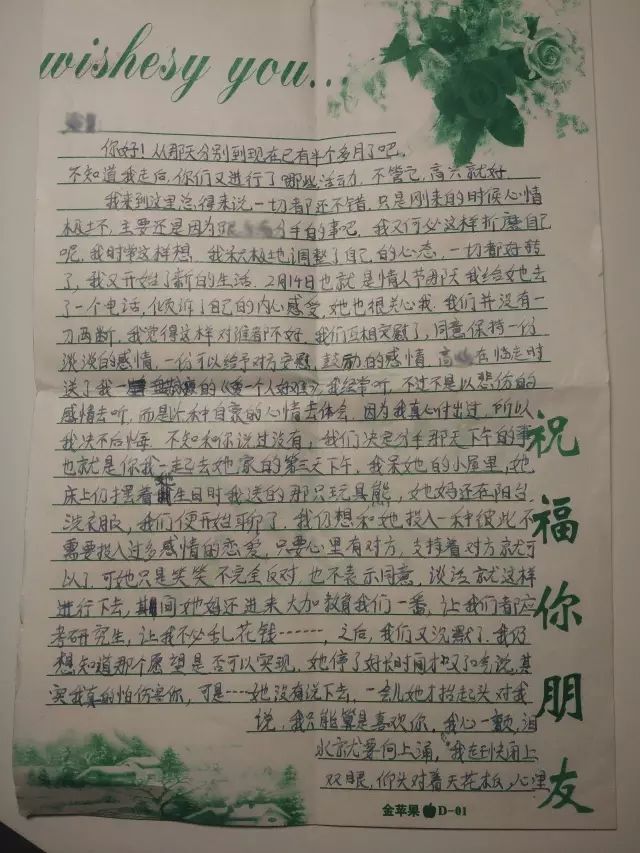 wishesy you...
你好！从那天分别到现在已有半个多月了吧。
不知道我走后，你们又进行了哪些活动，不管它，高兴就好。
我来到这里总得来说一切都还不错，只是刚来的时候心情
极坏，主要还是因为 分手的事吧，我又何必这样折磨自己
呢，我时常这样想，我积极地调整了自己的心态，一切都好转
了，我又开始了新的生活，2月14日也就是情人节那天我给她去
了一个电话，倾诉了自己的内心感受，她也很关心我，我们并没有一
刀两断，我觉得这样对谁都不好，我们互相安慰了，同意保持一份
淡淡的感情，一份可以给予对方安慰、鼓励的感情，高 在临走时
送了我一 的《 一个人好难》我经常听，不过不是以悲伤的
感情去听，而是以种自豪的心情去体会，因为我真心付出过，所以
我决不后悔，不知和你说过没有，我们决定分手那天下午的事
也就是你我一起去她家的第三天下午，我呆她的小屋里，她
床上仍摆着她生日时我送的那只玩具熊，她妈还在阳台
洗衣服，我们便开始聊了，我仍想和她投入一种彼此不
需要投入过多感情的恋爱，只要心里有对方，支持着对方就可
以了，可她只是笑笑，不完全反对，也不表示同意，谈话就这样
进行下去，其间她妈还进来大加教育我们一番，让我们都应
考研究生，让我不必乱花钱……，之后，我们又沉默了，我仍
想知道那个愿望是否可以实现，她停了好长时间才又叹气说，其
实我真的怕伤害你，可是……她没有说下去，一会儿她才抬起头对我
说，我只能算是喜欢你，我心一颤，泪
水就要向上涌，我赶快闭上
双眼，仰头对着天花板，心里
祝福你朋友
金苹果 D-01